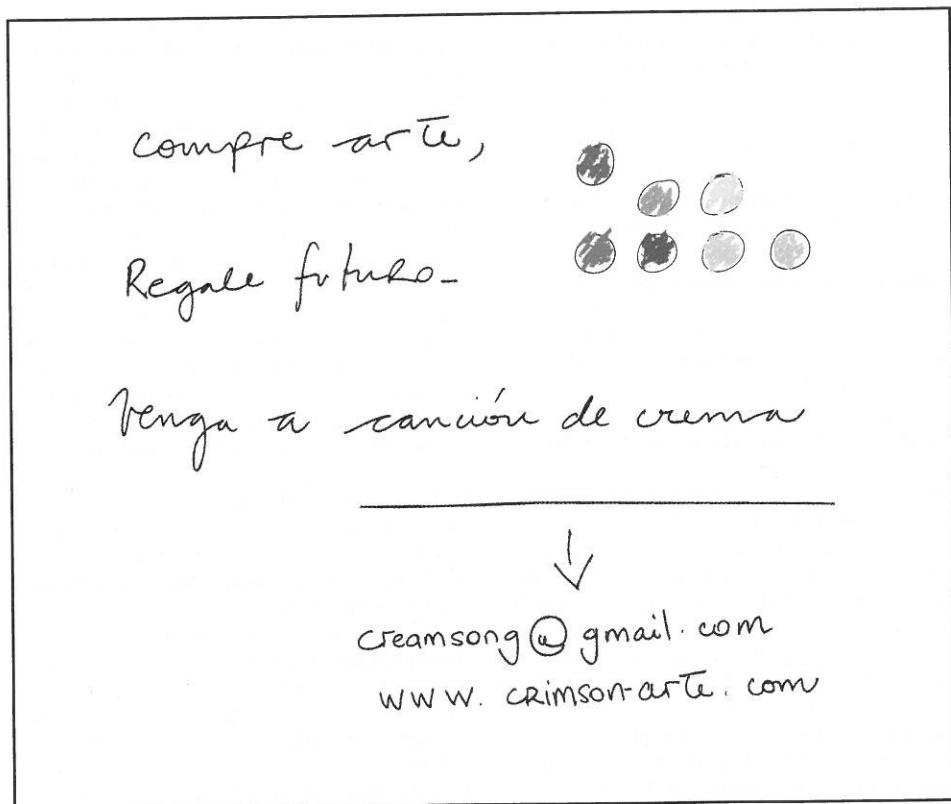 compre arte,
Regale futuro-
Venga a canción de crema
creamsong@gmail.com
www.crimson-arte.com